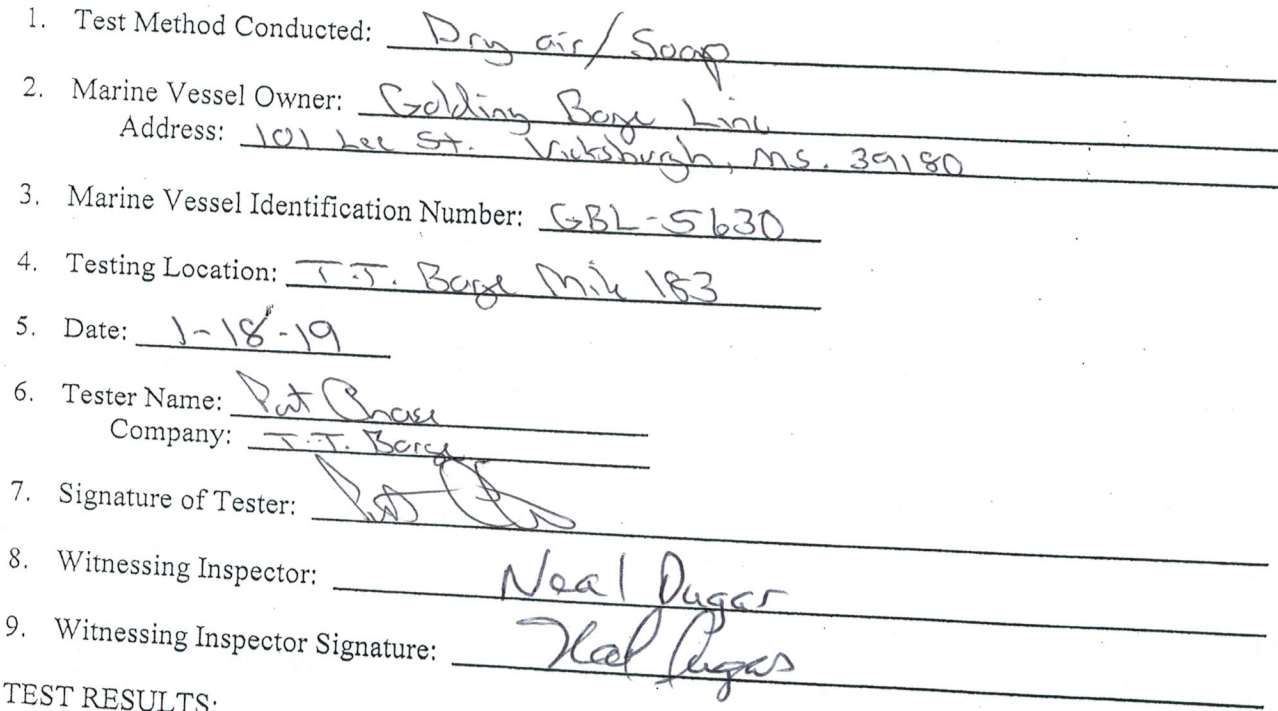 1. Test Method Conducted: Dry air/Soap
2. Marine Vessel Owner: Golding Barge Line
Address: 101 Lee St. Vicksburgh, MS. 39180
3. Marine Vessel Identification Number: GBL-5630
4. Testing Location: T.T. Barge Mile 183
5. Date: 1-18-19
6. Tester Name: Pat Chase
Company: T.T. Barge
7. Signature of Tester:
8. Witnessing Inspector: Neal Dugas
9. Witnessing Inspector Signature: Neal Dugas
TEST RESULTS: